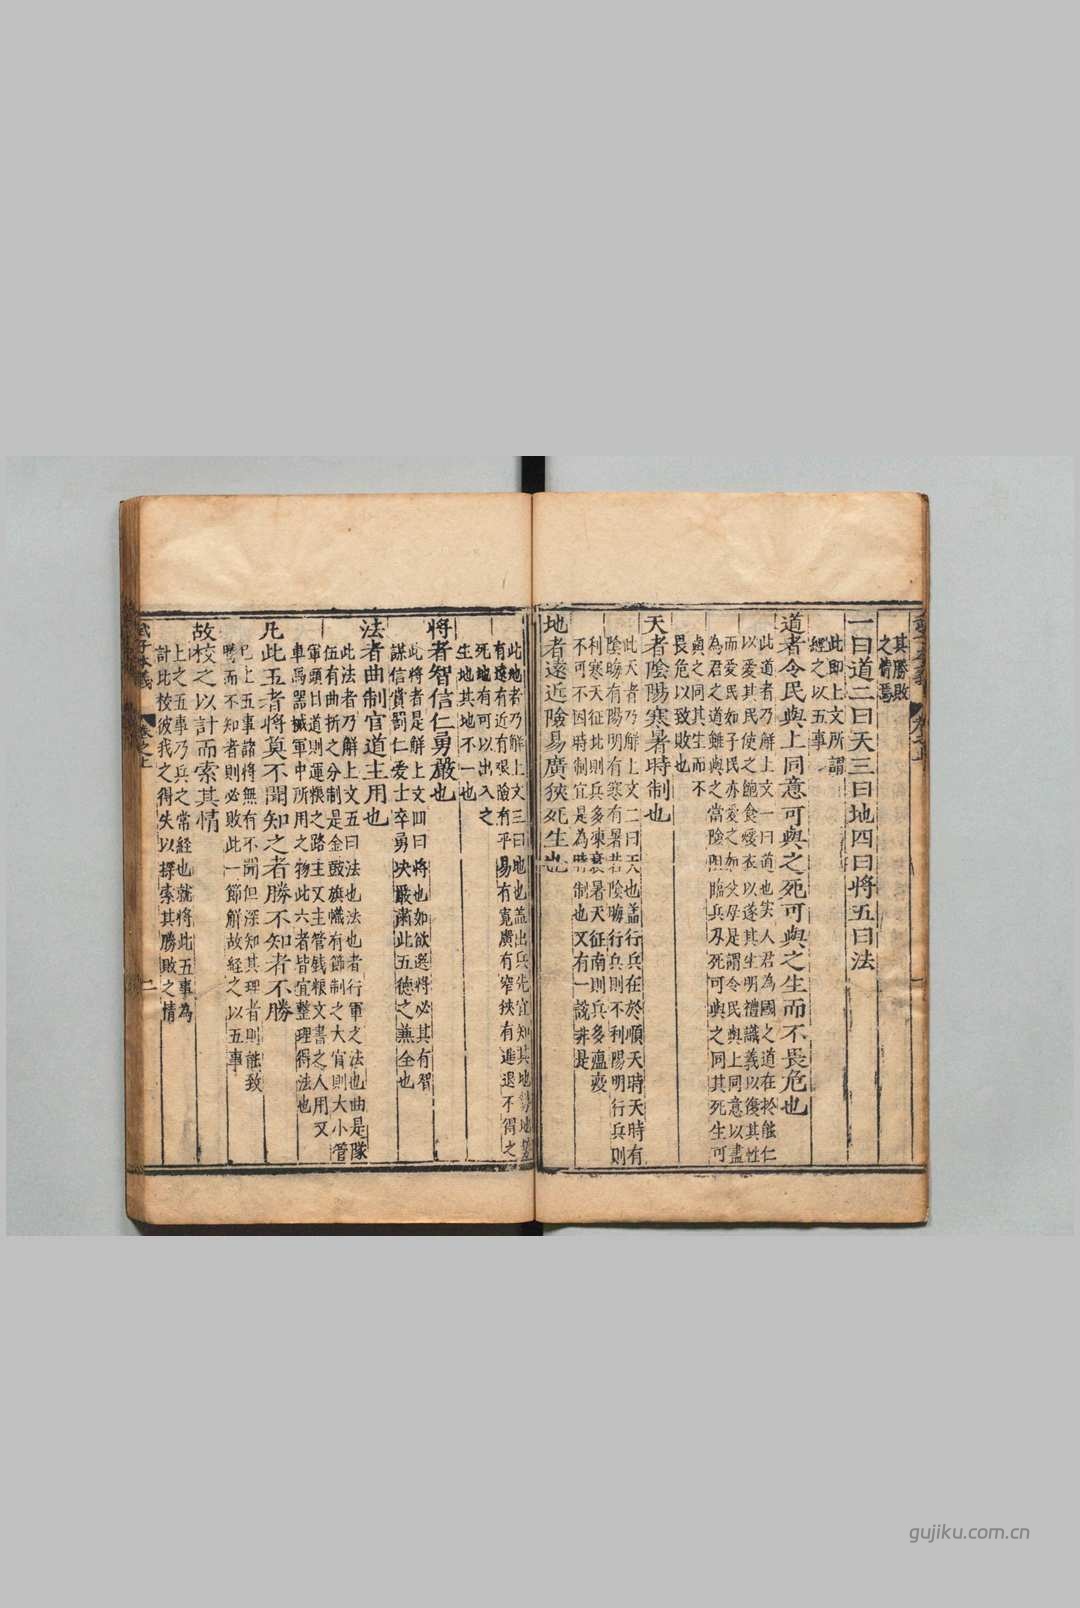 其勝敗
之情焉
一曰道二曰天三曰地四曰將五曰法
此即上文所謂
經之以五事
道者令民與上同意可與之死可與之生而不畏危也
此道者乃解上文一曰道也夫人君為國之道在於能仁
以愛其民使之飽食煖衣以遂其生明禮義以復其性
而愛民如子民亦愛之如父母是謂令民與上同意以盡
為君之道雖與之當險阻臨兵刃死可與之同其死生可
與之同其生而不
畏危以致敗也
天者陰陽寒暑時制也
此天者乃解上文二曰天也蓋行兵在於順天時天時有
陰晦有陽明有寒有暑若陰晦行兵則不利陽明行兵則
利寒天征北則兵多凍暑天征南則兵多瘟疫
不可不因時制宜是為時制也又有一說非是
地者遠近險易廣狹死生也
此地者乃解上文三曰地也蓋出兵先宜知其地勢地
有遠有近有艱險有平易有寬廣有窄狹有進退不得之
死地有可以出入之
生地其地不一也
將者智信仁勇嚴也
此將者是解上文四曰將也如欲選將必其有智
謀信賞罰仁愛士卒勇決嚴肅此五德之兼全也
法者曲制官道主用也
此法者乃解上文五曰法也法也者行軍之法也曲是隊
伍有曲折之分制是金鼓旗幟有節制之大官則大小管
軍頭目道則運糧之路主又主管錢粮文書之人用又
車馬器械軍中所用之物此六者皆宜整理得法也
凡此五者將莫不聞知之者勝不知者不勝
已上五事諸將無有不聞但深知其理者則能致
勝而不知者則必敗此一節解故經之以五事
故校之以計而索其情
上之五事乃兵之常經也就將此五事為
計比校彼我之得失以探索其勝敗之情
武子本義
卷之上
二
gujiku.com.cn